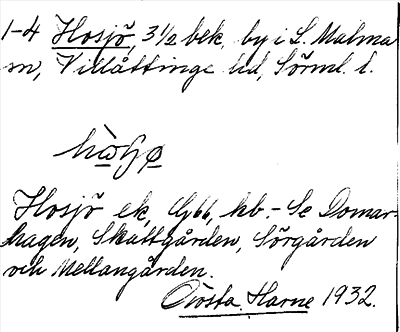 1-4 Hosjö, 3 1/2 bek, by i L. Malma
sn, Villåttinge hd, Sörml. l.
Hosjö ek, G66, kb.- Se Domar-
hagen, Skattgården, Sörgården
och Mellangården.
Gösta Harne 1932.